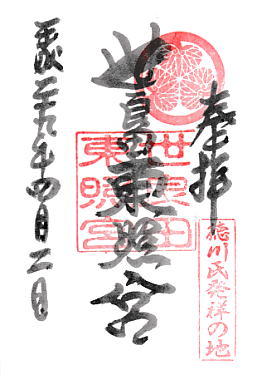 奉拝
徳川氏発祥の地
世良田東照宮
世良田
東照宮
平成二十九年四月二日